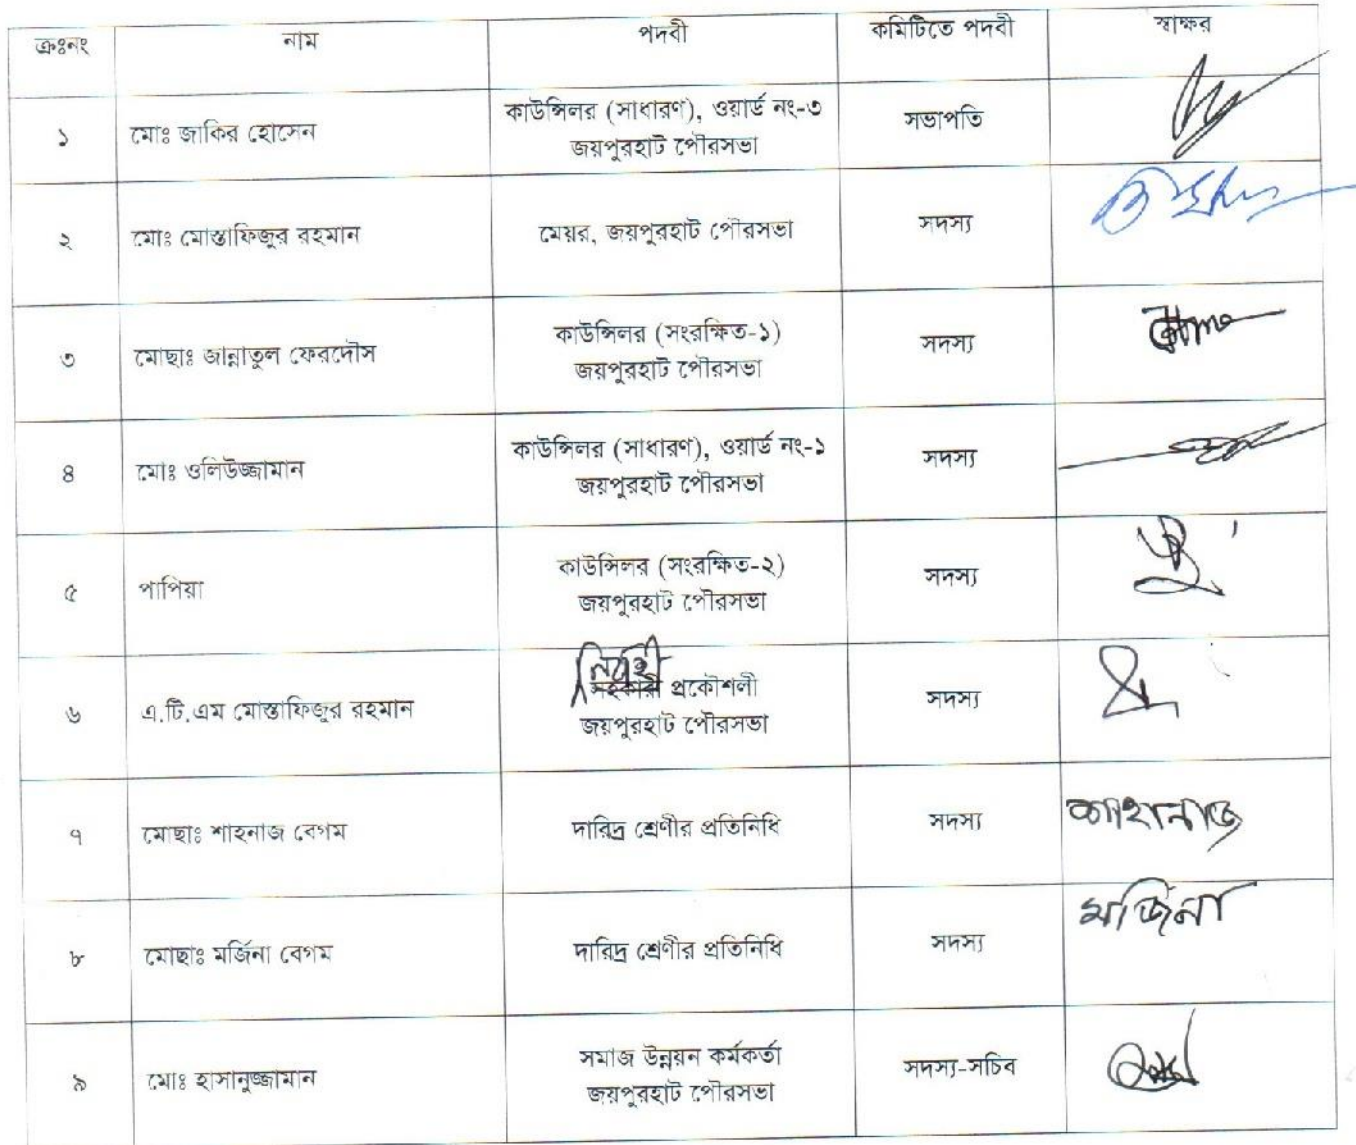 ক্রঃনং নাম পদবী কমিটিতে পদবী স্বাক্ষর
১ মোঃ জাকির হোসেন কাউন্সিলর (সাধারণ), ওয়ার্ড নং-৩ সভাপতি
জয়পুরহাট পৌরসভা
২ মোঃ মোস্তাফিজুর রহমান মেয়র, জয়পুরহাট পৌরসভা সদস্য
৩ মোছাঃ জান্নাতুল ফেরদৌস কাউন্সিলর (সংরক্ষিত-১) সদস্য
জয়পুরহাট পৌরসভা
৪ মোঃ ওলিউজ্জামান কাউন্সিলর (সাধারণ), ওয়ার্ড নং-১ সদস্য
জয়পুরহাট পৌরসভা
৫ পাপিয়া কাউন্সিলর (সংরক্ষিত-২) সদস্য
জয়পুরহাট পৌরসভা
নির্বাহী
৬ এ.টি.এম মোস্তাফিজুর রহমান সহকারী প্রকৌশলী সদস্য
জয়পুরহাট পৌরসভা
৭ মোছাঃ শাহনাজ বেগম দারিদ্র শ্রেণীর প্রতিনিধি সদস্য শাহানাজ
৮ মোছাঃ মর্জিনা বেগম দারিদ্র শ্রেণীর প্রতিনিধি সদস্য মর্জিনা
৯ মোঃ হাসানুজ্জামান সমাজ উন্নয়ন কর্মকর্তা সদস্য-সচিব
জয়পুরহাট পৌরসভা